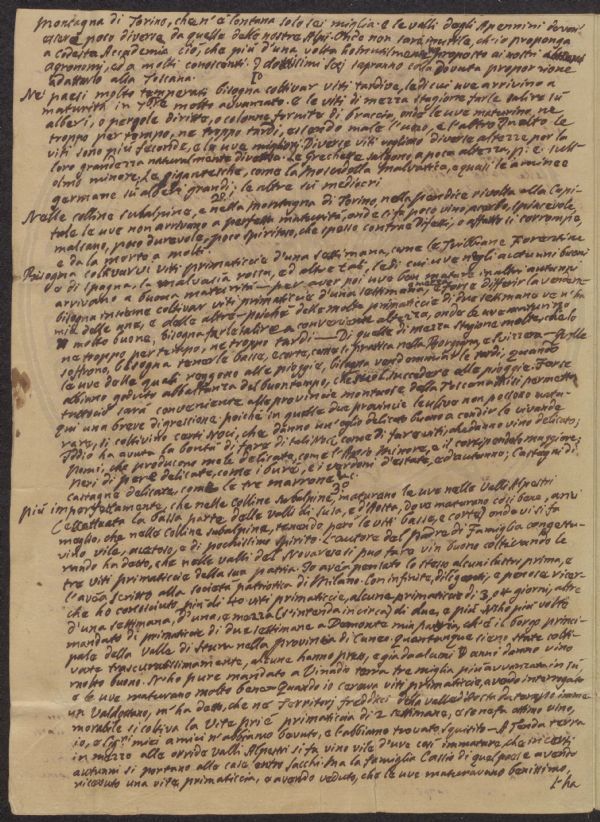 montagna di Torino, che n'è lontana solo sei miglia. e le valli degli Apennini devono
essere poco diverse da quelle delle nostre Alpi. Onde non sarà inutile, ch'io proponga
a codesta Accademia ciò, che più d'una volta ho inutilmente proposto ai nostri
agronomi, ed a molti conoscenti. I dottissimi Socj sapranno colla dovuta proporzione
adattarlo alla Toscana.
1º
Ne' paesi molto temperati bisogna coltivar viti tardive, le di cui uve arrivino a
maturità in 7bre molto avanzato. e le viti di mezza stagione farle salire su
alberi, o pergole diritte, o colonne fornite di braccia, onde le uve maturino, ne
troppo per tempo, ne troppo tardi, essendo male l'uno, e l'altro. In alto le
viti sono più feconde, e le uve migliori. Diverse viti vogliono diverse altezze, per la
loro grandezza naturalmente diversa. Le grechette salgono a poca altezza, p. e. sull'
olmo minore. Le gigantesche, come la Moscadella Malvatica, e quasi le aminee
germane su alberi grandi; le altre su mediocri.
2º
Nelle colline subalpine, e nella montagna di Torino, nella pendice rivolta alla Capi-
tale le uve non arrivano a perfetta maturità, onde si fa poco vino, acerbo, spiacevole,
malsano, poco durevole, poco spiritoso, che spesso contrae difetti, o affatto si corrompe,
e dà la morte a molti.
Bisogna coltivarvi viti primaticcie d'una settimana, come le Trebbiane Fiorentine
e di Spagna, la malvasia rossa, ed altre tali, le di cui uve negli autunni buoni
arrivano a buona maturità — per aver poi uve ben mature in altri autunni
bisogna insieme coltivar viti primaticcie d'una settimana e mezza, e forse differir la vendem-
mia delle une, e delle altre — poiché delle molto primaticcie di due settimane ve n'ha
molto buone, bisogna farle salire a conveniente altezza, onde le uve maturino
ne troppo per tempo, ne troppo tardi — Di quelle di mezza stagione molte, che lo
soffrono, bisogna tenerle basse, e corte, come si pratica nella Borgogna, e Svizzera — Quelle
le uve delle quali reggono alle pioggie, bisogna vendemmiarle tardi, quando
abbiano goduto abbastanza del buon tempo, che suol succedere alle pioggie. Forse
tuttociò sarà conveniente alle provincie montuose della Toscana. Mi si permetta
qui una breve digressione. poiché in quelle due provincie le ulive non possono matu-
rare, si coltivino certi Noci, che danno un'oglio delicato buono a condir le vivande
Iddio ha avuta la bontà di fare di tali Noci, come di fare viti, che danno vino delicato;
Pomi, che producono mele delicate, come l'Appio minore, e il corrispondente maggiore;
Peri di pere delicate, come i burè, e i verroni d'estate, e d'autunno; Castagni di
castagne delicate, come le tre marrone &c.
3º
Più imperfettamente, che nelle colline subalpine, maturano le uve nelle Valli Alpestri
(eccettuata la bassa parte delle valli di Susa, e d'Aosta, dove maturano così bene, anzi
meglio, che nelle colline subalpine, tenendo però le viti basse, e corte) onde vi si fa
vino vile, acetoso, e di pochissimo spirito. L'autore del Padre di Famiglia congettu-
rando ha detto, che nelle valli del Novarese si può fare vin buono coltivando le
tre viti primaticcie della sua patria. Io avea pensato lo stesso alcuni lustri prima, e
l'avea scritto alla società patriotica di Milano. Con infinite, diligenti, e penose ricer-
che ho conosciuto, più di 40 viti primaticcie, alcune primaticcie di 3, o 4 giorni, altre
d'una settimana, d'uno, e mezza (s'intenda incirca) di due, e più. Ne ho più volte
mandato di primaticcie di due settimane a Demonte mia patria, ch'è il borgo princi-
pale della Valle di Stura nella provincia di Cuneo. quantunque sieno state colti-
vate trascuratissimamente, alcune hanno preso, e già da alcuni anni danno vino
molto buono. Ne ho pure mandato a Vinadio terra tre miglia più avanzata in su,
e le uve maturano molto bene — Quando io cercava viti primaticcie, avendo interrogato
un Valdostano, m'ha detto, che ne' Territorj freddicci della valle d'Aosta da tempo imme-
morabile si coltiva la Vite Prié primaticcia di 2 settimane, e se ne fa ottimo vino,
io, e Sigri miei amici n'abbiamo bevuto, e l'abbiamo trovato squisito — A Tenda terra
in mezzo alle orride Valli Alpestri si fa vino vile d'uve così immature, che in certi
autunni si portano alle case entro sacchi. Ma la famiglia Cassio di quel paese avendo
ricevuto una vite primaticcia, e avendo veduto, che le uve maturavano benissimo,
l'ha